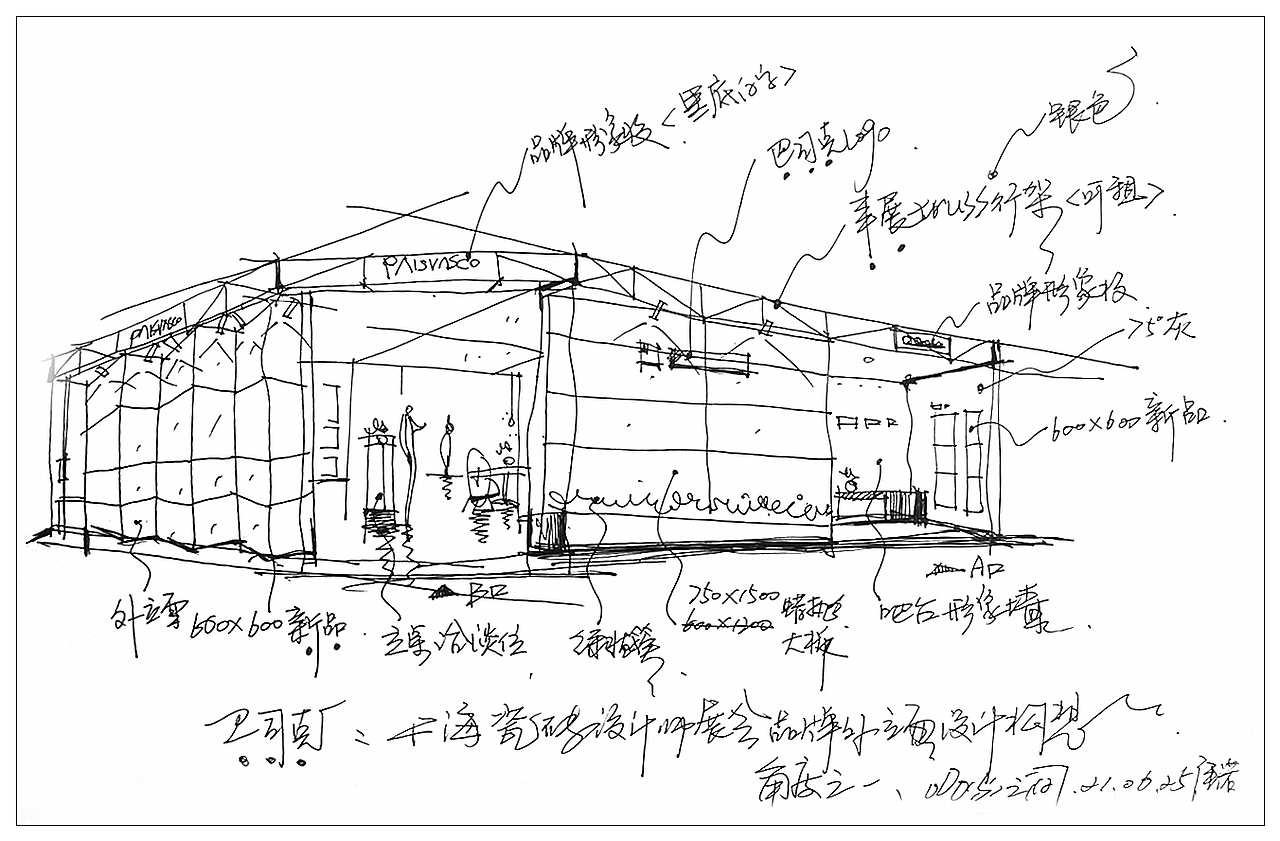 银色
品牌形象板<黑底白字>
巴司克Logo
truss行架<可租>
品牌形象板
75°灰
PAISVASCO
PAISVASCO
600×600新品
A口
B口
外立面
600×600新品
洽谈位
绿植
750×1500
600×1200
大板
吧台形象墙
巴司克:上海瓷砖设计师展会品牌外立面设计构想
角度之一、
21.06.25